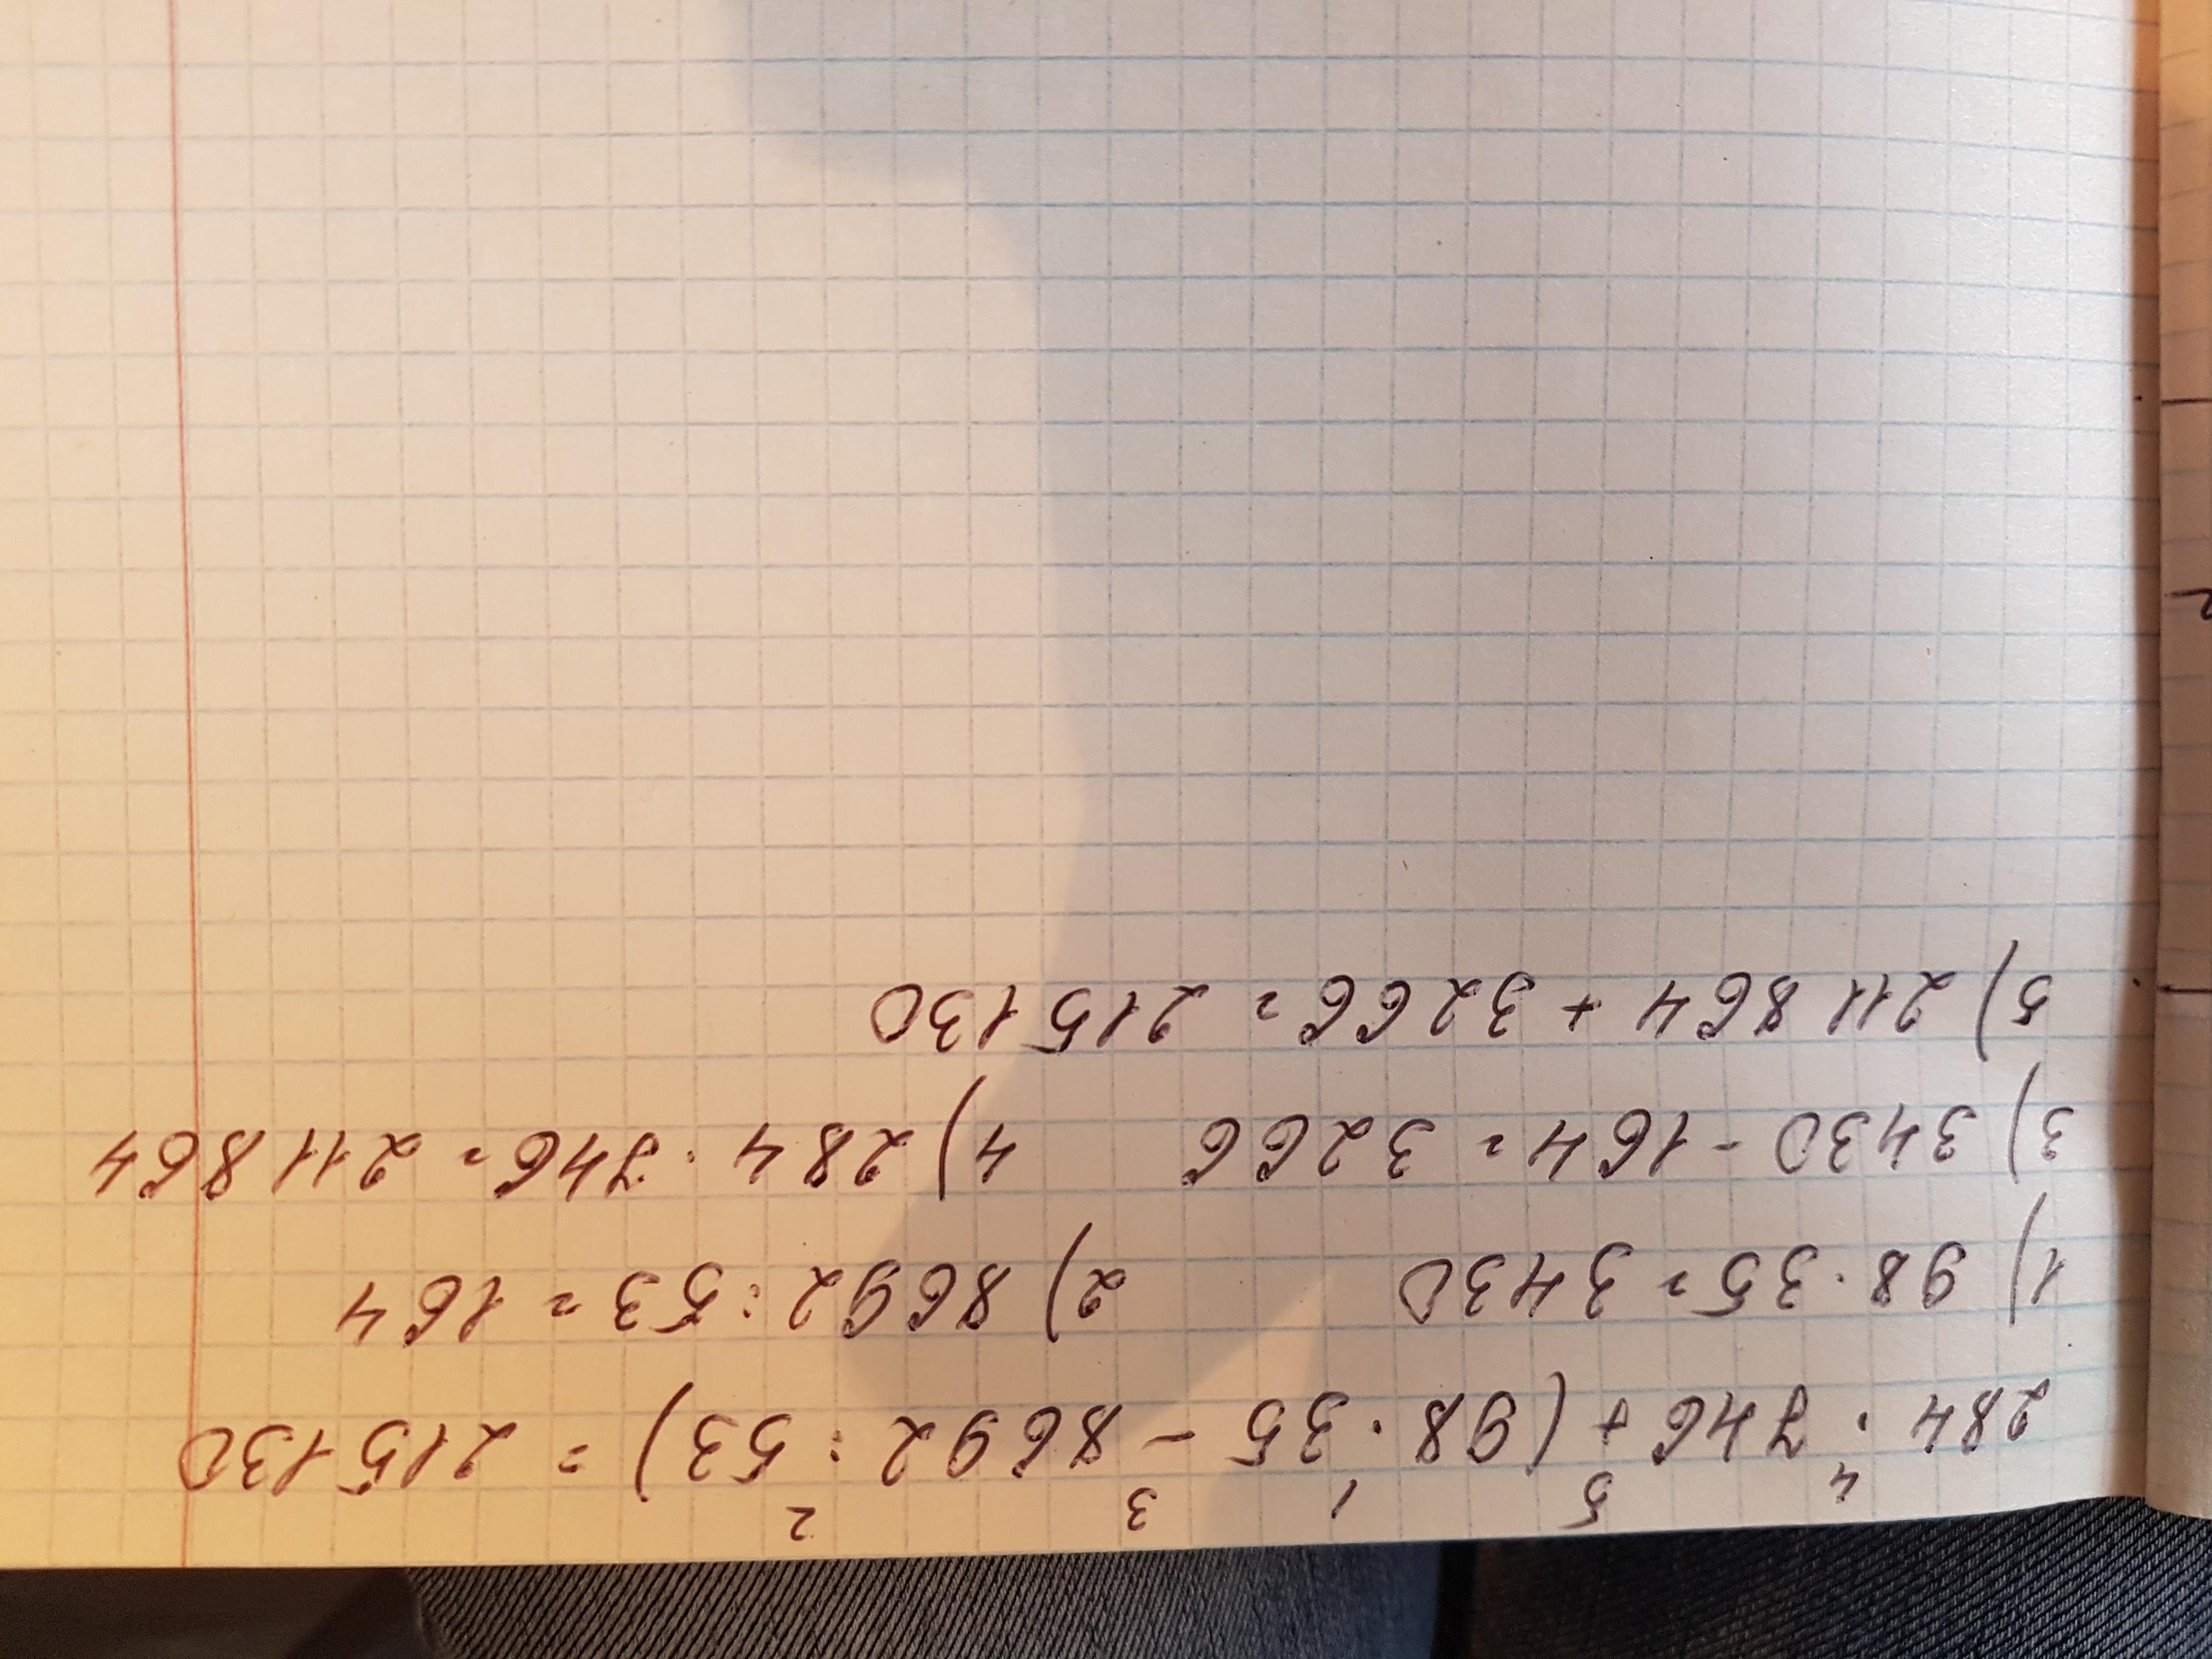 4 5 1 3 2
284 · 746 + (98 · 35 - 8692 : 53) = 215130
1) 98 · 35 = 3430 2) 8692 : 53 = 164
3) 3430 - 164 = 3266 4) 284 · 746 = 211864
5) 211864 + 3266 = 215130